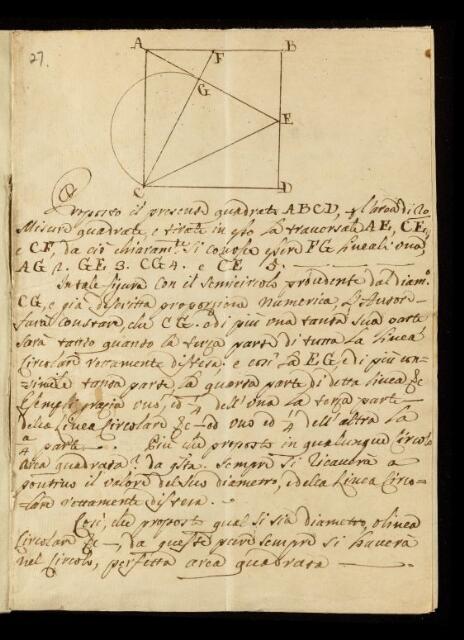 27.
A F B
G
E
C D
Proposto il presente quadrato ABCD, l'area di 20.
Misure quadrate, e tirate in esso la traversale AE, CE,
e CF, da ciò chiaramte. Si conosce esser FG lineali uno,
AG 2. GE 3. CG 4. e CE 5.
In tale figura con il semicircolo prudente dal diamo.
CG, e già descritta proporzione numerica, l'Autore
farà constare, che CG. o di più una tanta sua parte
sarà tanto quanto la terza parte di tutta la linea
Circolare rettamente distesa. e così la EG, e di più con=
simile tanta parte, la quarta parte di detta linea &c
Esempli grazia uno, ed 1/4 dell'una la terza parte
della linea Circolare &c ed uno ed 1/4 dell'altra la
4a parte. Più che proposto in qualunque Circolo
area quadrata da essa. sempre si ricaverà a
il valore del suo diametro, e della linea Circo=
lare rettamente distesa.
Così, che proposto qual si sia diametro, o linea
Circolare &c, da queste pure sempre si haverà
nel Circolo, perfetta area quadrata